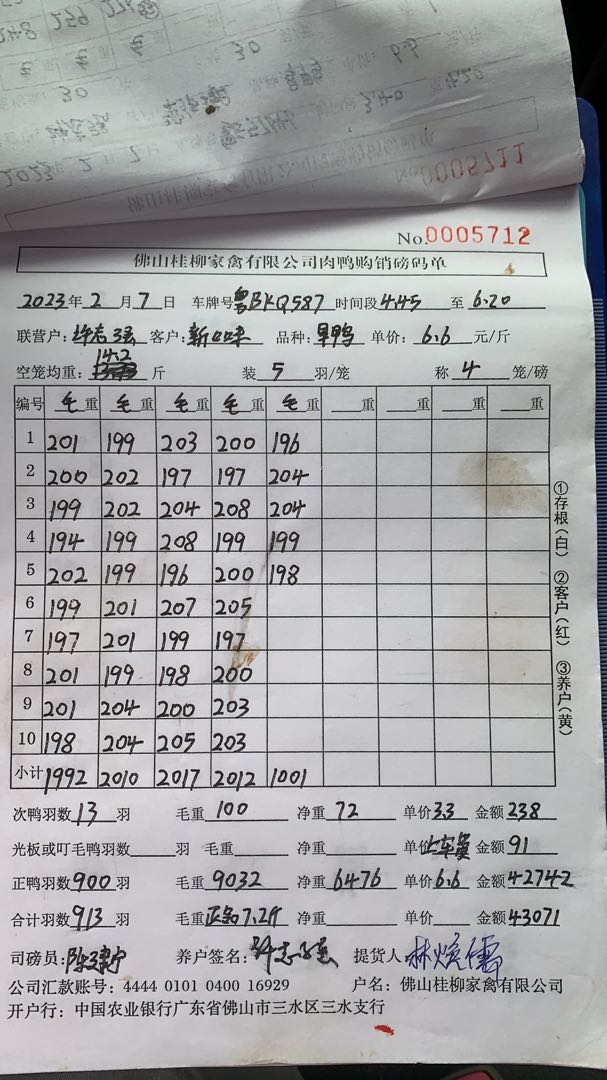 No.0005711
No.0005712
佛山桂柳家禽有限公司肉鸭购销磅码单
2023年2月7日 车牌号粤BKQ587 时间段4.45至6.20
联营户:许志强 客户:新口味 品种:旱鸭 单价:6.6元/斤
空笼均重:14.2斤 装5羽/笼 称4笼/磅
编号 毛重 毛重 毛重 毛重 毛重 重 重 重 重
1 201 199 203 200 196
2 200 202 197 197 204
3 199 202 204 208 204
4 194 199 208 199 199
5 202 199 196 200 198
6 199 201 207 205
7 197 201 199 197
8 201 199 198 200
9 201 204 200 203
10 198 204 205 203
小计 1992 2010 2017 2012 1001
次鸭羽数13羽 毛重100 净重72 单价3.3 金额238
光板或叮毛鸭羽数 羽 毛重 净重 单价上车费 金额91
正鸭羽数900羽 毛重9032 净重6476 单价6.6 金额42742
合计羽数913羽 毛重正均7.2斤 净重 单价 金额43071
司磅员: 养户签名:许志强 提货人:林焕儒
公司汇款账号:4444 0101 0400 16929 户名:佛山桂柳家禽有限公司
开户行:中国农业银行广东省佛山市三水区三水支行
①存根(白) ②客户(红) ③养户(黄)